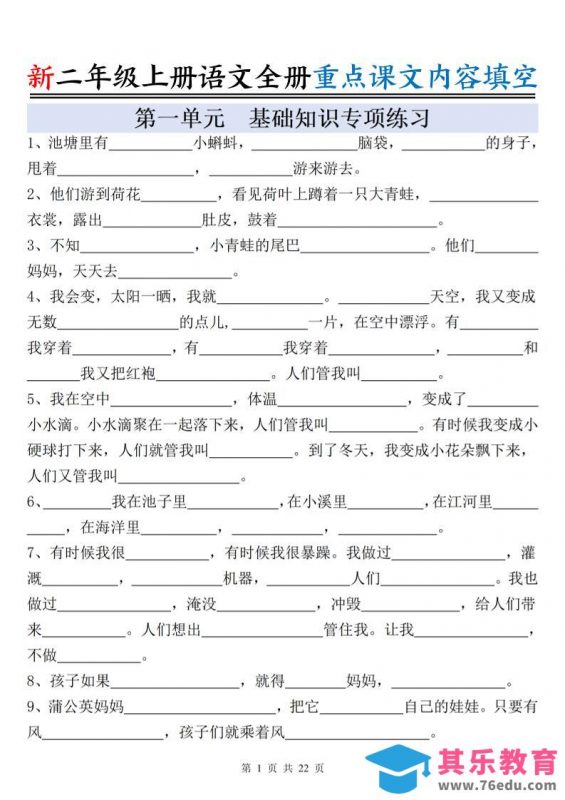 新二年级上册语文全册重点课文内容填空
第一单元 基础知识专项练习
1、池塘里有__________小蝌蚪，__________脑袋，__________的身子，
甩着________________，____________游来游去。
2、他们游到荷花_________，看见荷叶上蹲着一只大青蛙，_____________
衣裳，露出____________肚皮，鼓着___________________。
3、不知______________，小青蛙的尾巴_______________。他们________
妈妈，天天去_____________。
4、我会变，太阳一晒，我就__________。___________天空，我又变成
无数______________的点儿,_________一片，在空中漂浮。有_________
我穿着___________，有__________我穿着_____________，________和
______我又把红袍__________。人们管我叫_________。
5、我在空中___________，体温__________，变成了________
小水滴。小水滴聚在一起落下来，人们管我叫__________。有时候我变成小
硬球打下来，人们就管我叫__________。到了冬天，我变成小花朵飘下来，
人们又管我叫__________。
6、________我在池子里__________,在小溪里_________,在江河里_____
____，在海洋里________，__________，__________。
7、有时候我很_________，有时候我很暴躁。我做过__________，灌
溉_________，_________机器，__________人们__________。我也
做过_____________，淹没__________，冲毁_________，给人们带
来__________。人们想出______________管住我。让我_____________，
不做__________。
8、孩子如果___________，就得______妈妈，_______________。
9、蒲公英妈妈______________，把它__________自己的娃娃。只要有
风______________，孩子们就乘着风______________。
第 1 页 共 22 页
其乐教育
www.76edu.com